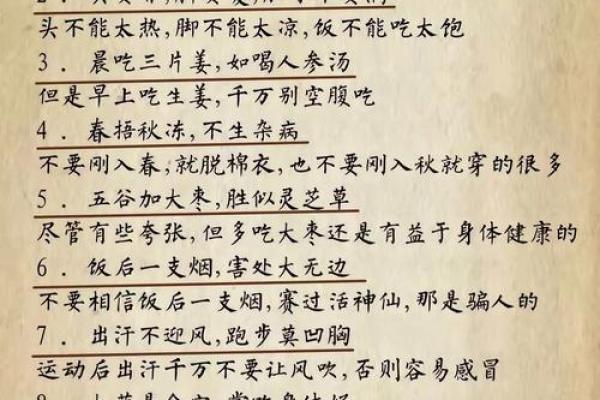 头不能太热,脚不能太凉,饭不能吃太饱
3．晨吃三片姜,如喝人参汤
但是早上吃生姜,千万别空腹吃
4．春捂秋冻,不生杂病
不要刚入春,就脱棉衣,也不要刚入秋就穿的很多
5．五谷加大枣,胜似灵芝草
尽管有些夸张,但多吃大枣还是有益于身体健康的
6．饭后一支烟,害处大无边
不要相信饭后一支烟,赛过活神仙,那是骗人的
7．出汗不迎风,跑步莫凹胸
运动后出汗千万不要让风吹,否则容易感冒